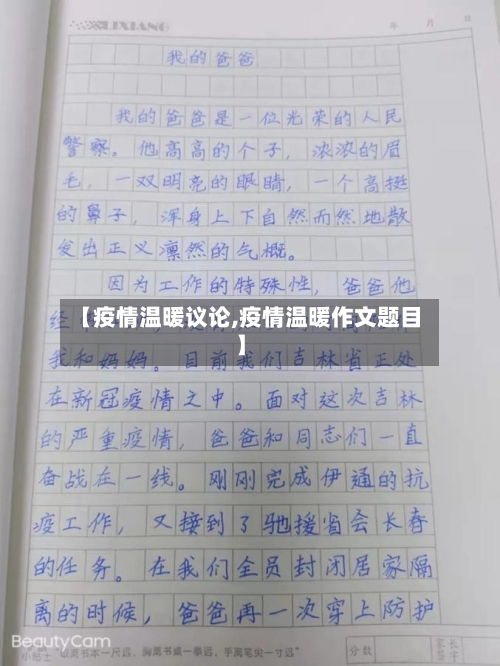 LIXIANG
年 月 日
我的爸爸
我的爸爸是一位光荣的人民
警察。他高高的个子，浓浓的眉
毛，一双明亮的眼睛，一个高挺
的鼻子，浑身上下自然而然地散
发出正义凛然的气概。
因为工作的特殊性，爸爸他
经
【疫情温暖议论,疫情温暖作文题目
】
我和妈妈。目前我们吉林省正处
在新冠疫情之中。面对这次吉林
的严重疫情，爸爸和同志们一直
奋战在一线。刚刚完成伊通的抗
疫工作，又接到了驰援省会长春
的任务。在我们全员封闭居家隔
离的时候，爸爸再一次穿上防护
BeautyCam
小贴士 眼离书本一尺远，胸离书桌一拳远，手离笔尖一寸远
分数
家长
签字